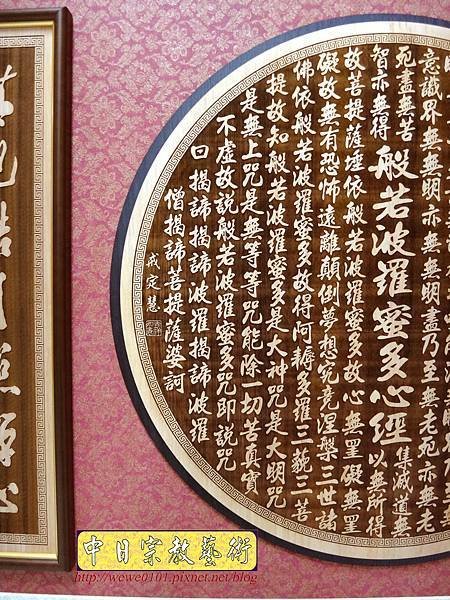 意識界無無明亦無無明盡乃至無老死亦無老
死盡無苦
般若波羅蜜多心經
集滅道無
智亦無得
以無所得
故菩提薩埵依般若波羅蜜多故心無罣礙無罣
礙故無有恐怖遠離顛倒夢想究竟涅槃三世諸
佛依般若波羅蜜多故得阿耨多羅三藐三菩
提故知般若波羅蜜多是大神咒是大明咒
是無上咒是無等等咒能除一切苦真實
不虛故說般若波羅蜜多咒即說咒
曰揭諦揭諦波羅揭諦波羅
僧揭諦菩提薩婆訶
戒定慧
中日宗教藝術
http://wewe0101.pixnet.net/blog